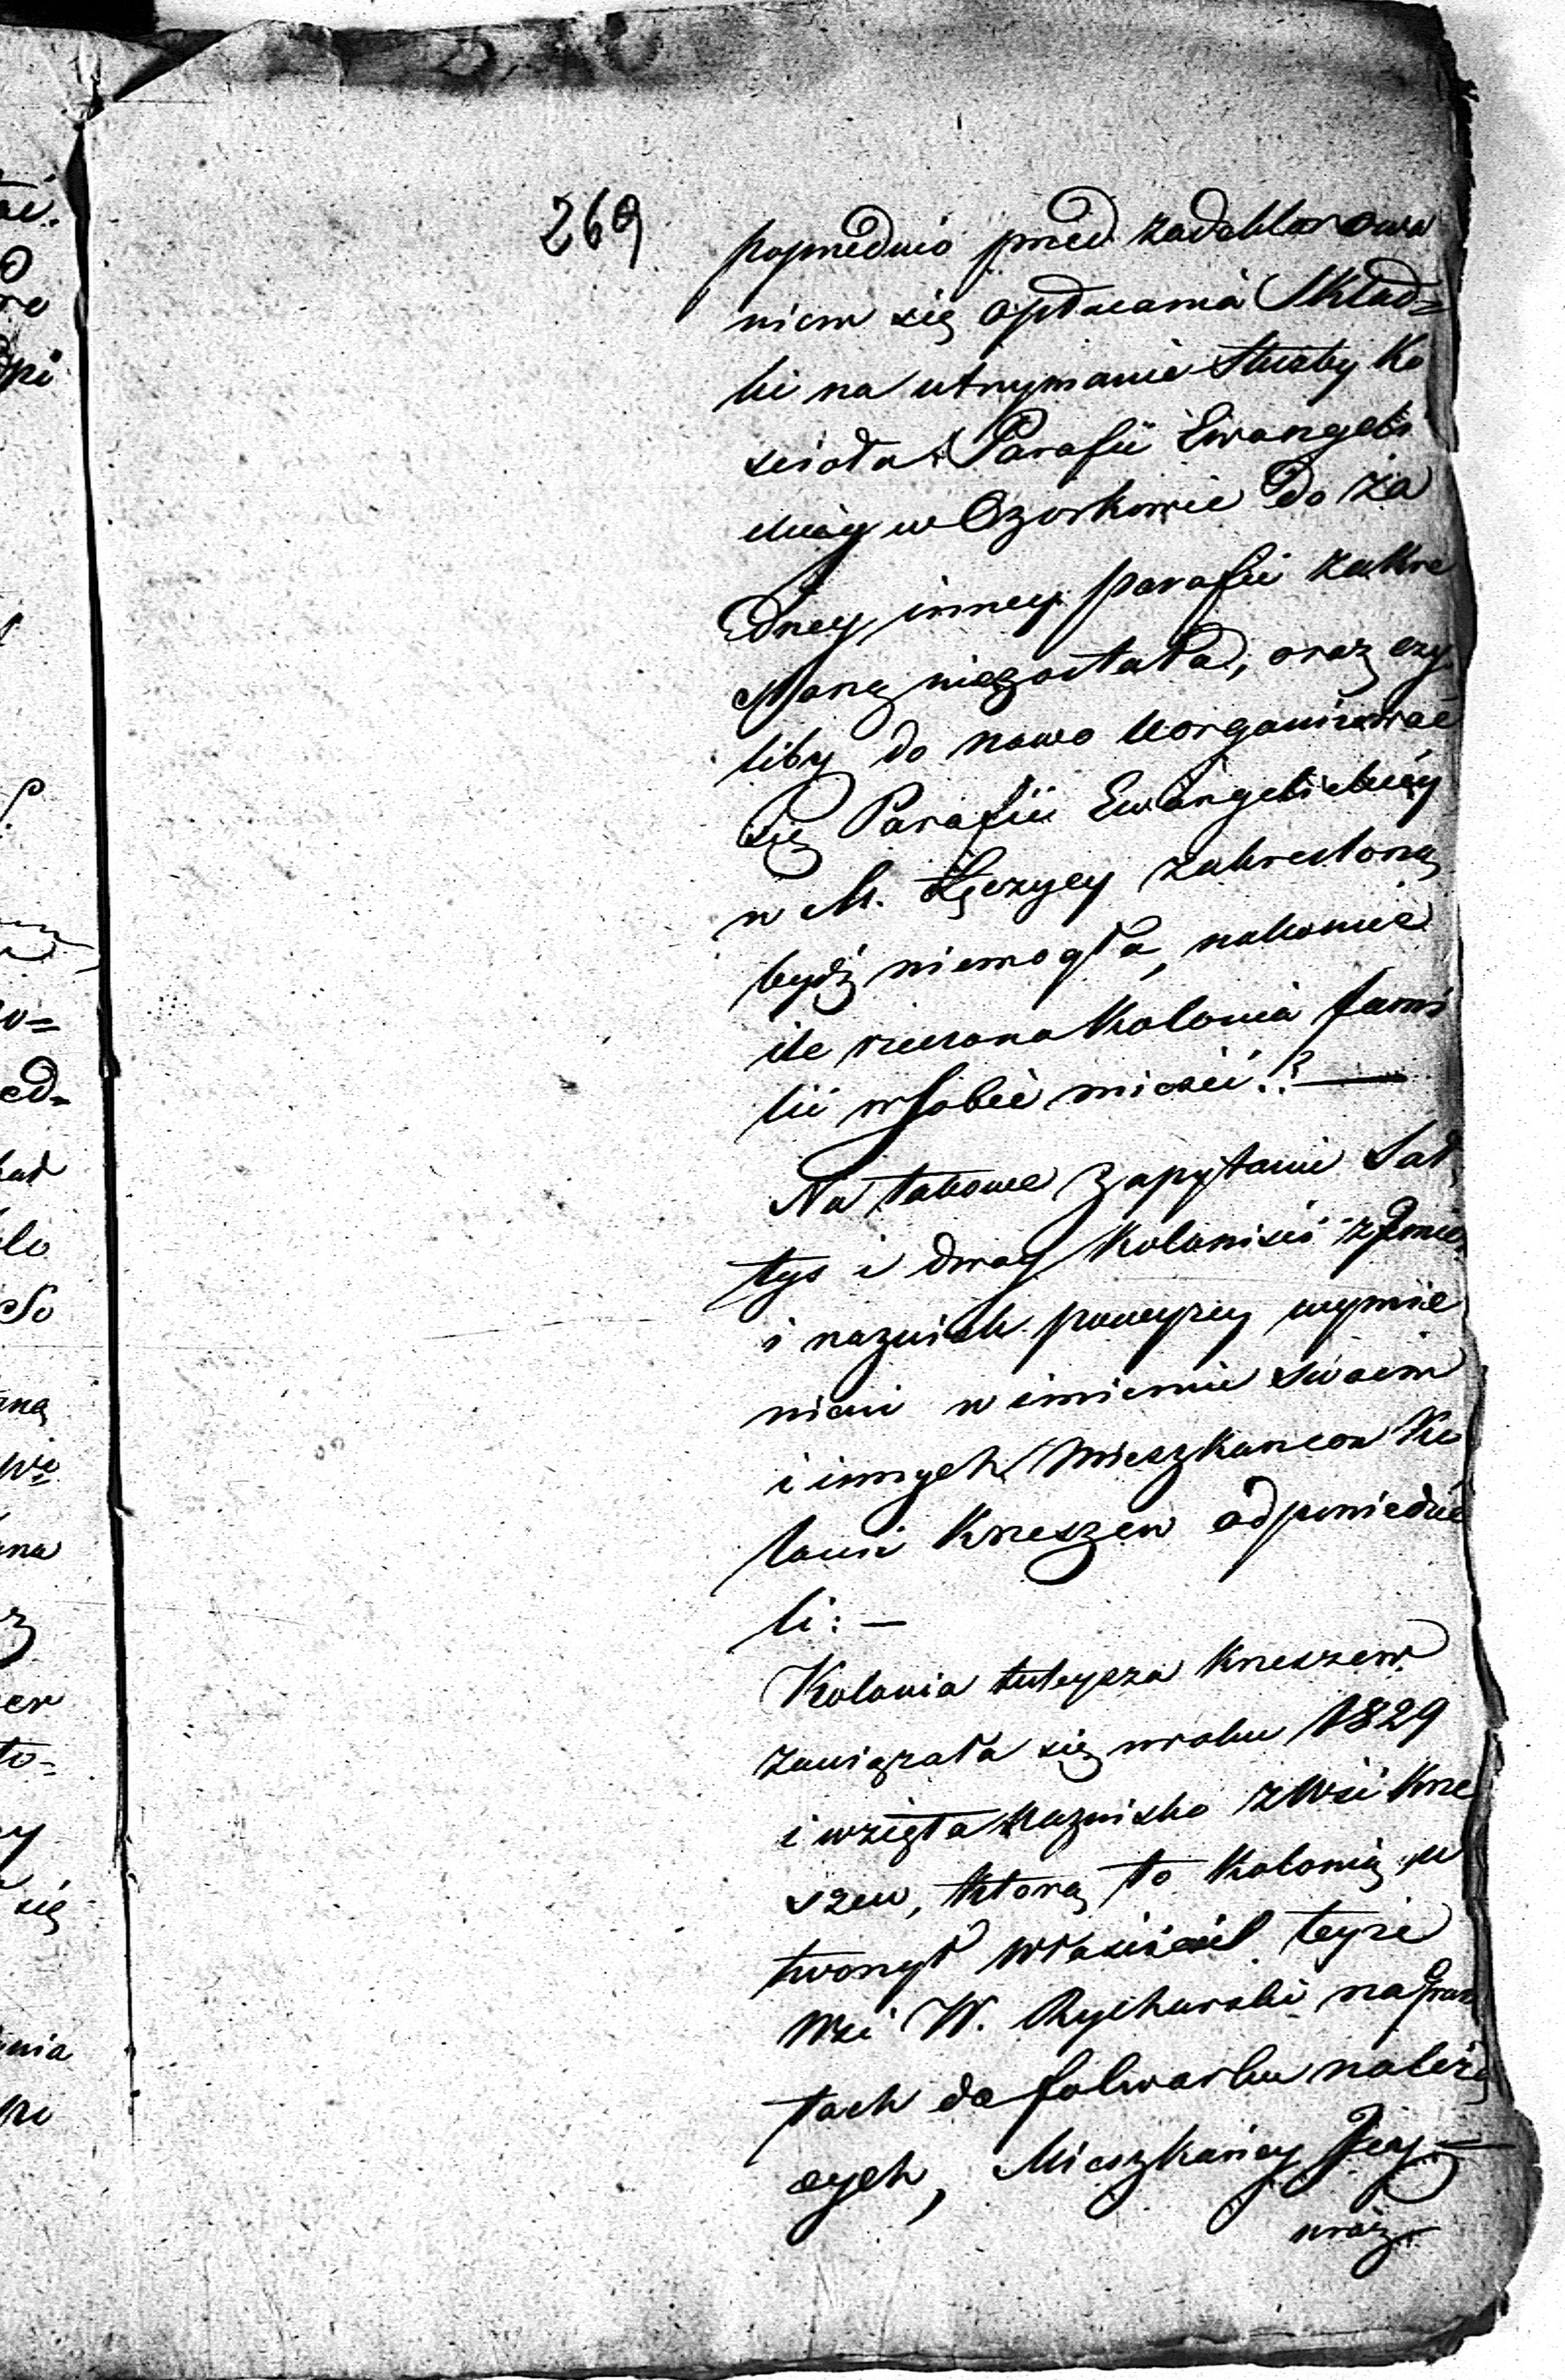 269
poprzednio przed zadeklarowa
niem się opłacania Skład=
ki na utrzymanie Służby Ko
ścioła i Parafii Ewangeli
ckiéy w Ozorkowie do ża
dney inney parafii zakre
sloną niezostała, oraz czy
liby do nowo uorganizować
się Parafii Ewangelickiéy
w M. Łęczycy zakresloną
bydź niemogła, nakoniec
ile rzeczona Kolonia fami
lii w sobie mieści?
Na takowe Zapytanie Soł
tys i dwaj Koloniści z Imie
i nazwisk powyżey wymie
nieni w imieniu swoiem
i innych Mieszkancow Ko
lonii Krzeszew odpowiedzie
li: —
Kolonia tuteysza Krzeszew
zawiązała się w roku 1829
i wzięła nazwisko z Wsi Krze
szew, którą to Kolonią u
tworzył właściciel teyże
Wsi W. Rycharski na grun
tach do folwarku należą
cych, Mieszkańcy Jey —
wraz
ai.
o
re
pi
o=
ed=
lo
So
ną
na
er
to=
y
się
nia